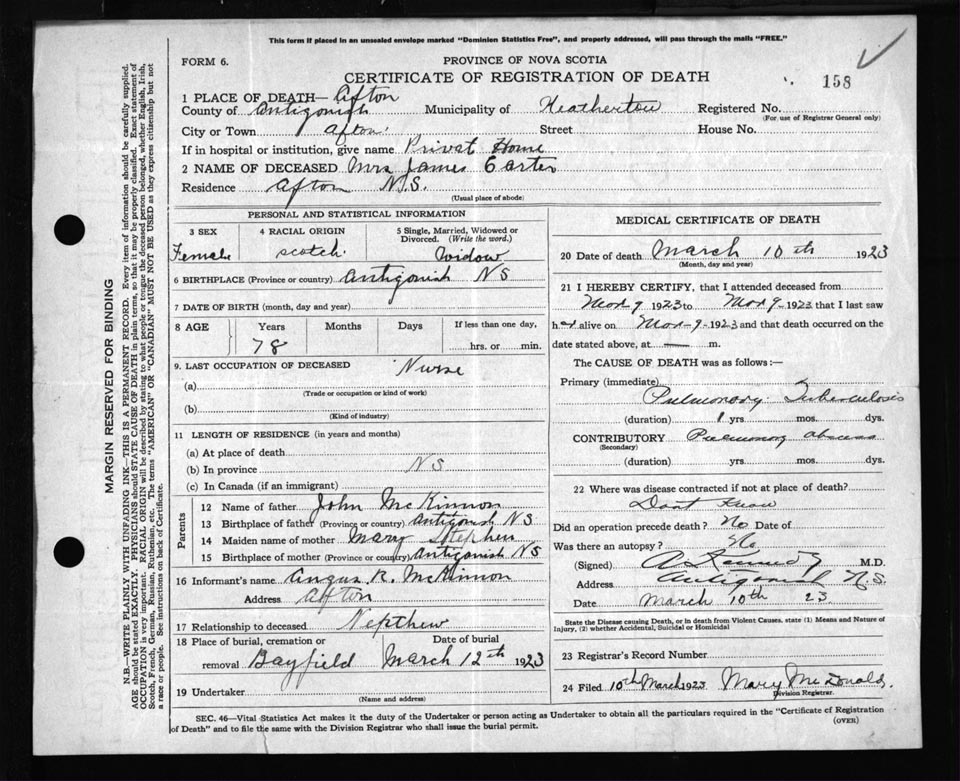 This form if placed in an unsealed envelope marked "Dominion Statistics Free", and properly addressed, will pass through the mails "FREE."
FORM 6.
PROVINCE OF NOVA SCOTIA
CERTIFICATE OF REGISTRATION OF DEATH
158
1 PLACE OF DEATH— Afton
County of Antigonish Municipality of Heatherton Registered No.
(For use of Registrar General only)
City or Town Afton Street House No.
If in hospital or institution, give name Privat Home
2 NAME OF DECEASED Mrs James Carter
Residence Afton N.S.
(Usual place of abode)
PERSONAL AND STATISTICAL INFORMATION
3 SEX 4 RACIAL ORIGIN 5 Single, Married, Widowed or Divorced. (Write the word.)
Female scotch widow
6 BIRTHPLACE (Province or country) Antigonish NS
7 DATE OF BIRTH (month, day and year)
8 AGE Years Months Days If less than one day,
78 hrs. or min.
9. LAST OCCUPATION OF DECEASED Nurse
(a)
(Trade or occupation or kind of work)
(b)
(Kind of industry)
11 LENGTH OF RESIDENCE (in years and months)
(a) At place of death
(b) In province NS
(c) In Canada (if an immigrant)
Parents
12 Name of father John McKinnon
13 Birthplace of father (Province or country) Antigonish NS
14 Maiden name of mother Mary Stephen
15 Birthplace of mother (Province or country) Antigonish NS
16 Informant's name Angus R. McKinnon
Address Afton
17 Relationship to deceased Nepthew
18 Place of burial, cremation or Date of burial
removal Bayfield March 12th 1923
19 Undertaker
(Name and address)
MEDICAL CERTIFICATE OF DEATH
20 Date of death March 10th 1923
(Month, day and year)
21 I HEREBY CERTIFY, that I attended deceased from
Mar 9 1923 to Mar 9 1923 that I last saw
her alive on Mar-9-1923 and that death occurred on
date stated above, at — m.
The CAUSE OF DEATH was as follows:—
Primary (immediate)
Pulmonary Tuberculosis
(duration) 1 yrs. mos. dys.
CONTRIBUTORY Pulmonary abscess
(Secondary)
(duration) yrs. mos. dys.
22 Where was disease contracted if not at place of death?
Dont Know
Did an operation precede death? No Date of
Was there an autopsy? No
(Signed) M.D.
Address Antigonish N.S.
Date March 10th 23
State the Disease causing Death, or in death from Violent Causes, state (1) Means and Nature of
Injury, (2) whether Accidental, Suicidal or Homicidal
23 Registrar's Record Number
24 Filed 10th March 1923 Mary McDonald.
Division Registrar.
SEC. 46—Vital Statistics Act makes it the duty of the Undertaker or person acting as Undertaker to obtain all the particulars required in the "Certificate of Registration
of Death" and to file the same with the Division Registrar who shall issue the burial permit.
(OVER)
MARGIN RESERVED FOR BINDING
N.B.—WRITE PLAINLY WITH UNFADING INK—THIS IS A PERMANENT RECORD. Every item of information should be carefully supplied.
AGE should be stated EXACTLY. PHYSICIANS should STATE CAUSE OF DEATH in plain terms, so that it may be properly classified. Exact statement of
OCCUPATION is very important. RACIAL ORIGIN will be described by stating to what people or tongue the deceased person belonged, whether English, Irish,
Scotch, French, German, Russian, Ruthenian, etc. The terms "AMERICAN" OR "CANADIAN" MUST NOT BE USED as they express citizenship but not
a race or people. See instructions on back of Certificate.